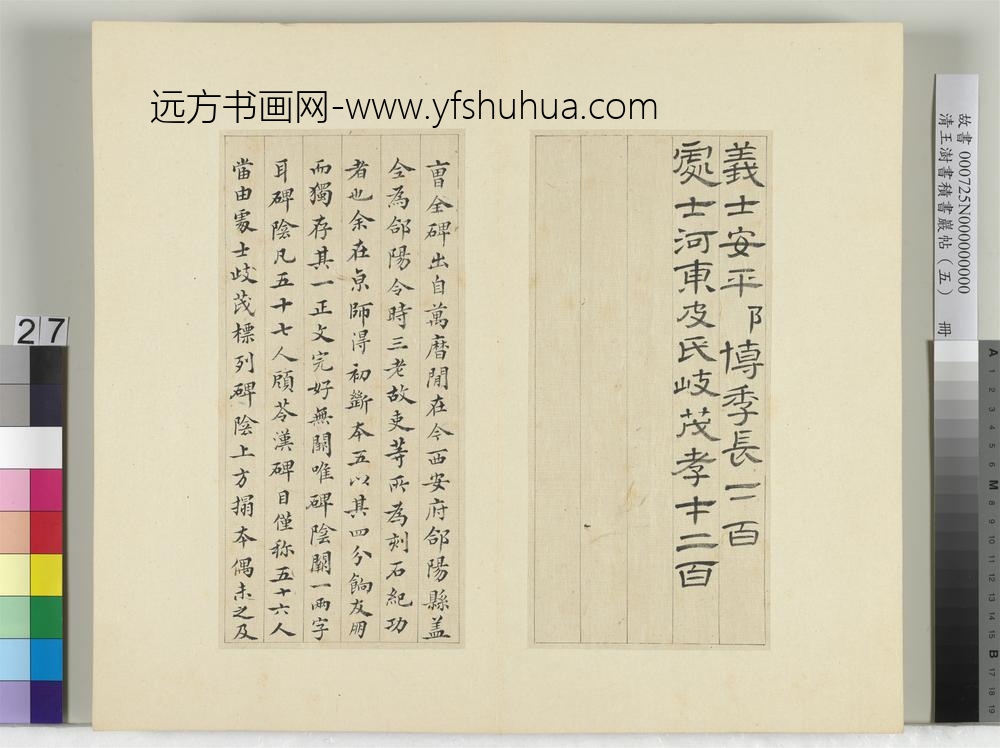 远方书画网-www.yfshuhua.com
故書000725N000000000
清王澍書積書巖帖（五） 冊
義士安平卩博季長二百
處士河東皮氏岐茂孝才二百
曺全碑出自萬曆閒在今西安府郃陽縣盖
全為郃陽令時三老故吏等所為刻石紀功
者也余在京師得初斷本五以其四分餉友朋
而獨存其一正文完好無闕唯碑陰闕一兩字
耳碑陰凡五十七人顧苓漢碑目僅称五十六人
當由處士岐茂標列碑陰上方搨本偶未之及
27
A 1 2 3 4 5 6 M 8 9 10 11 12 13 14 15 B 17 18 19